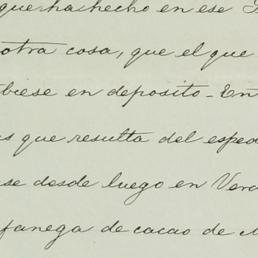 que ha hecho en ese
otra cosa, que el que
biese en deposito - En
s que resulta del esped
se desde luego en Vera
fanega de cacao de M